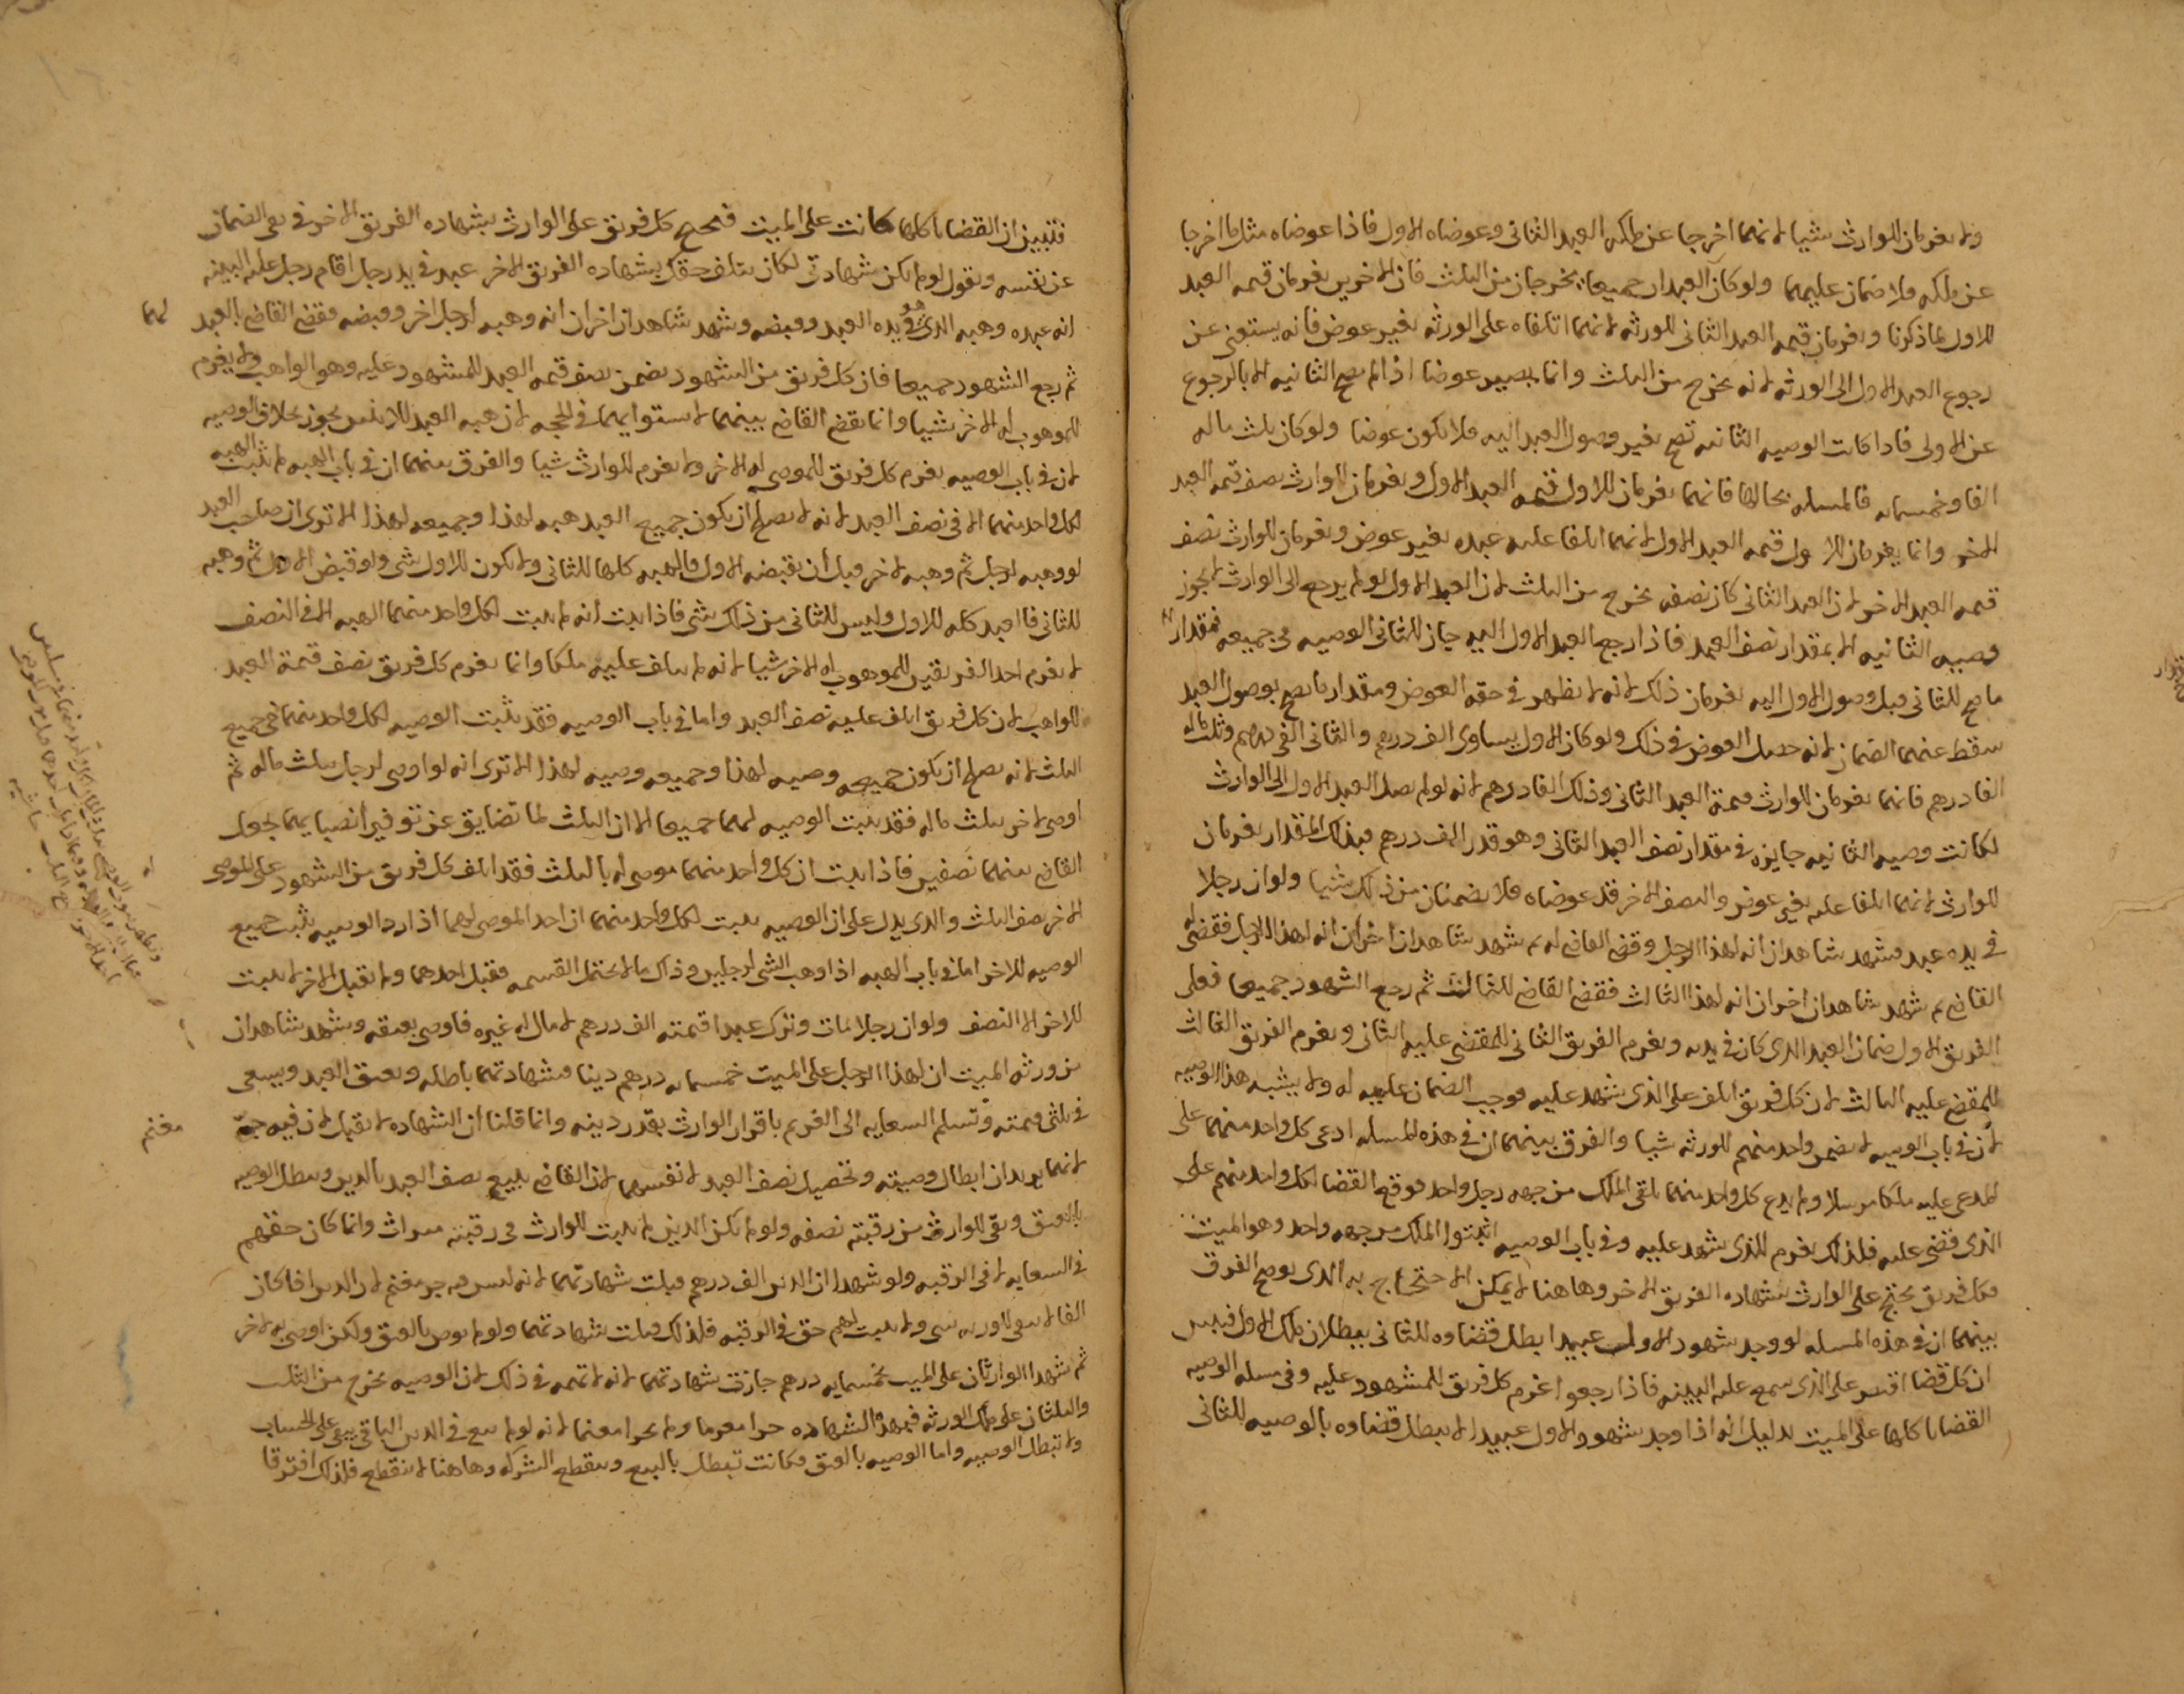 ولا يغرمان للوارث شيا لانهما اخرجا عن ملكه العبد الثاني وعوضاه الاول فاذا عوضاه مثل ما اخرجا
عن ملكه فلا ضمان عليهما ولو كان العبدان جميعا يخرجان من الثلث فان الاخرين يغرمان قيمه العبد
للاول لما ذكرنا ويغرمان قيمه العبد الثاني للورثه لانهما اتلفاه على الورثه بغير عوض فانه يستغنى عن
رجوع العبد الاول الى الورثه لانه يخرج من الثلث وانما يصير عوضا اذا لم يصح الثانيه الا بالرجوع
عن الاولى فاذا كانت الوصيه الثانيه تصح بغير وصول العبد اليه فلا يكون عوضا ولو كان ثلث ماله
الفا وخمسمايه فالمسله بحالها فانهما يغرمان للاول قيمه العبد الاول ويغرمان للوارث نصف قيمه العبد
الاخر وانما يغرمان للاول قيمه العبد الاول لانهما اتلفا عليه عبده بغير عوض ويغرمان للوارث نصف
قيمه العبد الاخر لان العبد الثاني كان نصفه يخرج من الثلث لان العبد الاول لو لم يرجع الى الوارث لا يجوز
وصيه الثانيه الا بمقدار نصف العبد فاذا رجع العبد الاول اليه جاز للثاني الوصيه في جميعه فمقدار
ما صح للثاني قبل وصول الاول اليه يغرمان ذلك لانه لا يظهر في حقه العوض ومقدار ما يصح بوصول العبد
سقط عنهما الضمان لانه حصل العوض في ذلك ولو كان الاول يساوي الف درهم والثاني الفي درهم وثلث ماله
الفا درهم فانهما يغرمان للوارث قيمة العبد الثاني وذلك الفا درهم لانه لو لم يصل العبد الاول الى الوارث
لكانت وصيه الثانيه جايزه في مقدار نصف العبد الثاني وهو قدر الف درهم فبذلك المقدار يغرمان
للوارث لانهما اتلفا عليه بغير عوض والنصف الاخر قد عوضاه فلا يضمنان من ذلك شيا ولو ان رجلا
في يده عبد فشهد شاهدان انه لهذا الرجل وقضى القاضي له ثم شهد شاهدان اخران انه لهذا الرجل فقضى له
القاضي ثم شهد شاهدان اخران انه لهذا الثالث فقضى القاضي للثالث ثم رجع الشهود جميعا فعلى
الفريق الاول ضمان العبد الذي كان في يديه ويغرم الفريق الثاني للمقضي عليه الثاني ويغرم الفريق الثالث
للمقضي عليه الثالث لان كل فريق اتلف على الذي شهد عليه فوجب الضمان عليه له ولا يشبه هذا الوصيه
لان في باب الوصيه لا يضمن واحد منهم للورثه شيا والفرق بينهما ان في هذه المسله ادعى كل واحد منهما على
المدعى عليه ملكا مرسلا ولم يدع كل واحد منهما تلقى الملك من جهه رجل واحد فوقع القضا لكل واحد منهم على
الذي قضى عليه فلذلك يغرم للذي شهد عليه وفي باب الوصيه اثبتوا الملك من جهه واحد وهو الميت
فكل فريق يحتج على الوارث بشهاده الفريق الاخر وهاهنا لا يمكن الاحتجاج به الذي يوضح الفرق
بينهما ان في هذه المسله لو وجد شهود الاول عبيدا ابطل قضاوه للثاني ببطلان ملك الاول فتبين
ان كل قضا اقتصر على الذي سمع عليه البينه فاذا رجعوا غرم كل فريق للمشهود عليه وفي مسله الوصيه
القضايا كلها على الميت بدليل انه اذا وجد شهود الاول عبيدا لا يبطل قضاوه بالوصيه للثاني
فتبين ان القضايا كلها كانت على الميت فيحتج كل فريق على الوارث بشهاده الفريق الاخر في نفي الضمان
عن نفسه ويقول لو لم تكن شهادتي لكان يتلف حقك بشهاده الفريق الاخر عبد في يد رجل اقام رجل عليه البينه
انه عبده وهبه الذي هو في يده العبد وقبضه وشهد شاهدان اخران انه وهبه لرجل اخر وقبضه فقضى القاضي بالعبد لهما
ثم رجع الشهود جميعا فان كل فريق من الشهود يضمن نصف قيمه العبد للمشهود عليه وهو الواهب ولا يغرم
للموهوب له الاخر شيا وانما يقضي القاضي بينهما لاستوايهما في الحجه لان هبه العبد للاثنين يجوز بخلاف الوصيه
لان في باب الوصيه يغرم كل فريق للموصى له الاخر ولا يغرم للوارث شيا والفرق بينهما ان في باب الهبه لم يثبت الهبه
لكل واحد منهما الا في نصف العبد لانه لا يصلح ان يكون جميع العبد هبه لهذا وجميعه لهذا الا ترى ان صاحب العبد
لو وهبه لرجل ثم وهبه لاخر قبل ان يقبضه الاول فالهبه كلها للثاني ولا يكون للاول شي ولو قبض الاول ثم وهبه
للثاني فالعبد كله للاول وليس للثاني من ذلك شي فاذا ثبت انه لم يثبت لكل واحد منهما الهبه الا في النصف
لا يغرم احد الفريقين للموهوب له الاخر شيا لانه لم يتلف عليه ملكا وانما يغرم كل فريق نصف قيمة العبد
للواهب لان كل فريق اتلف عليه نصف العبد واما في باب الوصيه فقد يثبت الوصيه لكل واحد منهما في جميع
الثلث لانه يصلح ان يكون جميعه وصيه لهذا وجميعه وصيه لهذا الا ترى انه لو اوصى لرجل بثلث ماله ثم
اوصى لاخر بثلث ماله فقد يثبت الوصيه لهما جميعا الا ان الثلث لما تضايق عن توفير انصبايهما يجعل
القاضي بينهما نصفين فاذا ثبت ان كل واحد منهما موصى له بالثلث فقد اتلف كل فريق من الشهود على الموصى
الاخر نصف الثلث والذي يدل على ان الوصيه يثبت لكل واحد منهما ان احد الموصى لهما اذا رد الوصيه يثبت جميع
الوصيه للاخر اما في باب الهبه اذا وهب الشي لرجلين وذاك مما لا يحتمل القسمه فقبل احدهما ولم يقبل الاخر لا يثبت
للاخر الا النصف ولو ان رجلا مات وترك عبدا قيمته الف درهم لا مال له غيره فاوصى بعتقه وشهد شاهدان
من ورثه الميت ان لهذا الرجل على الميت خمسمايه درهم دينا فشهادتهما باطله ويعتق العبد ويسعى
في ثلثي قيمته وتسلم السعايه الى الغريم باقرار الوارث بقدر دينه وانما قلنا ان الشهاده لا تقبل لان فيه جر مغنم
لانهما يريدان ابطال وصيته وتحصيل نصف العبد لانفسهما لان القاضي يبيع نصف العبد بالدين ويبطل الوصيه
بالعتق وبقي للوارث من رقبته نصفه ولو لم يكن الدين لم يثبت للوارث في رقبته ميراث وانما كان حقهم
في السعايه لا في الرقبه ولو شهدا ان الدين الف درهم قبلت شهادتهما لانه ليس فيه جر مغنم لان الدين اذا كان
الفا لا يبقى للورثه شي ولا يثبت لهم حق في الرقبه فلذلك قبلت شهادتهما ولو لم يوص بالعتق ولكن اوصى به لاخر
ثم شهد الوارثان على الميت بخمسمايه درهم جازت شهادتهما لانه لا تهمه في ذلك لان الوصيه يخرج من الثلث
والثلثان على ملك الورثه فبهذه الشهاده جرا مغرما ولم يجرا مغنما لانه لو لم يبع في الدين الباقي يبقى على الحساب
ولا تبطل الوصيه واما الوصيه بالعتق فكانت تبطل بالبيع وينقطع الشركه وهاهنا لا ينقطع فلذلك افترقا